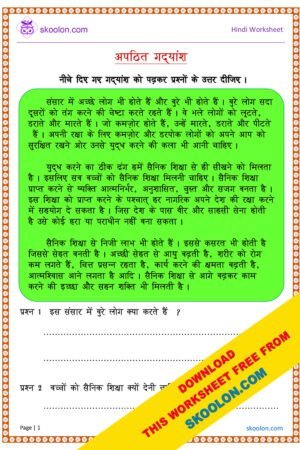 skoolon.com
Hindi Worksheet
अपठित गद्यांश
नीचे दिए गए गद्यांश को पढ़कर प्रश्नों के उत्तर दीजिए ।
संसार में अच्छे लोग भी होते हैं और बुरे भी होते हैं । बुरे लोग सदा
दूसरों को तंग करने की चेष्टा करते रहते हैं । वे भले लोगों को लूटते,
डराते और मारते हैं । जो कमज़ोर होते हैं, उन्हें मारते, डराते और पीटते
हैं । अपनी रक्षा के लिए कमज़ोर और डरपोक लोगों को अपने आप को
सुरक्षित रखने और उनसे युद्ध करने की कला भी आनी चाहिए ।
युद्ध करने का ठीक ढंग हमें सैनिक शिक्षा से ही सीखने को मिलता
है । इसलिए सब बच्चों को सैनिक शिक्षा मिलनी चाहिए । सैनिक शिक्षा
प्राप्त करने से व्यक्ति आत्मनिर्भर, अनुशासित, चुस्त और सजग बनता है ।
इस शिक्षा को प्राप्त करने के पश्चात् हर नागरिक अपने देश की रक्षा करने
में सहयोग दे सकता है । जिस देश के पास वीर और साहसी सेना होती
है उसे कोई हरा या पराधीन नहीं बना सकता ।
सैनिक शिक्षा से निजी लाभ भी होते हैं । इससे कसरत भी होती है
जिससे सेहत बनती है । अच्छी सेहत से आयु बढ़ती है, शरीर को रोग
कम लगते हैं, चित्त प्रसन्न रहता है, कार्य करने की क्षमता बढ़ती है,
आत्मविश्वास आने लगता है आदि । सैनिक शिक्षा से आगे बढ़कर काम
करने की इच्छा और सहन शक्ति भी मिलती है ।
प्रश्न 1 इस संसार में बुरे लोग क्या करते हैं ?
प्रश्न 2 बच्चों को सैनिक शिक्षा क्यों देनी
DOWNLOAD
THIS WORKSHEET FREE FROM
SKOOLON.COM
Page | 1
skoolon.com